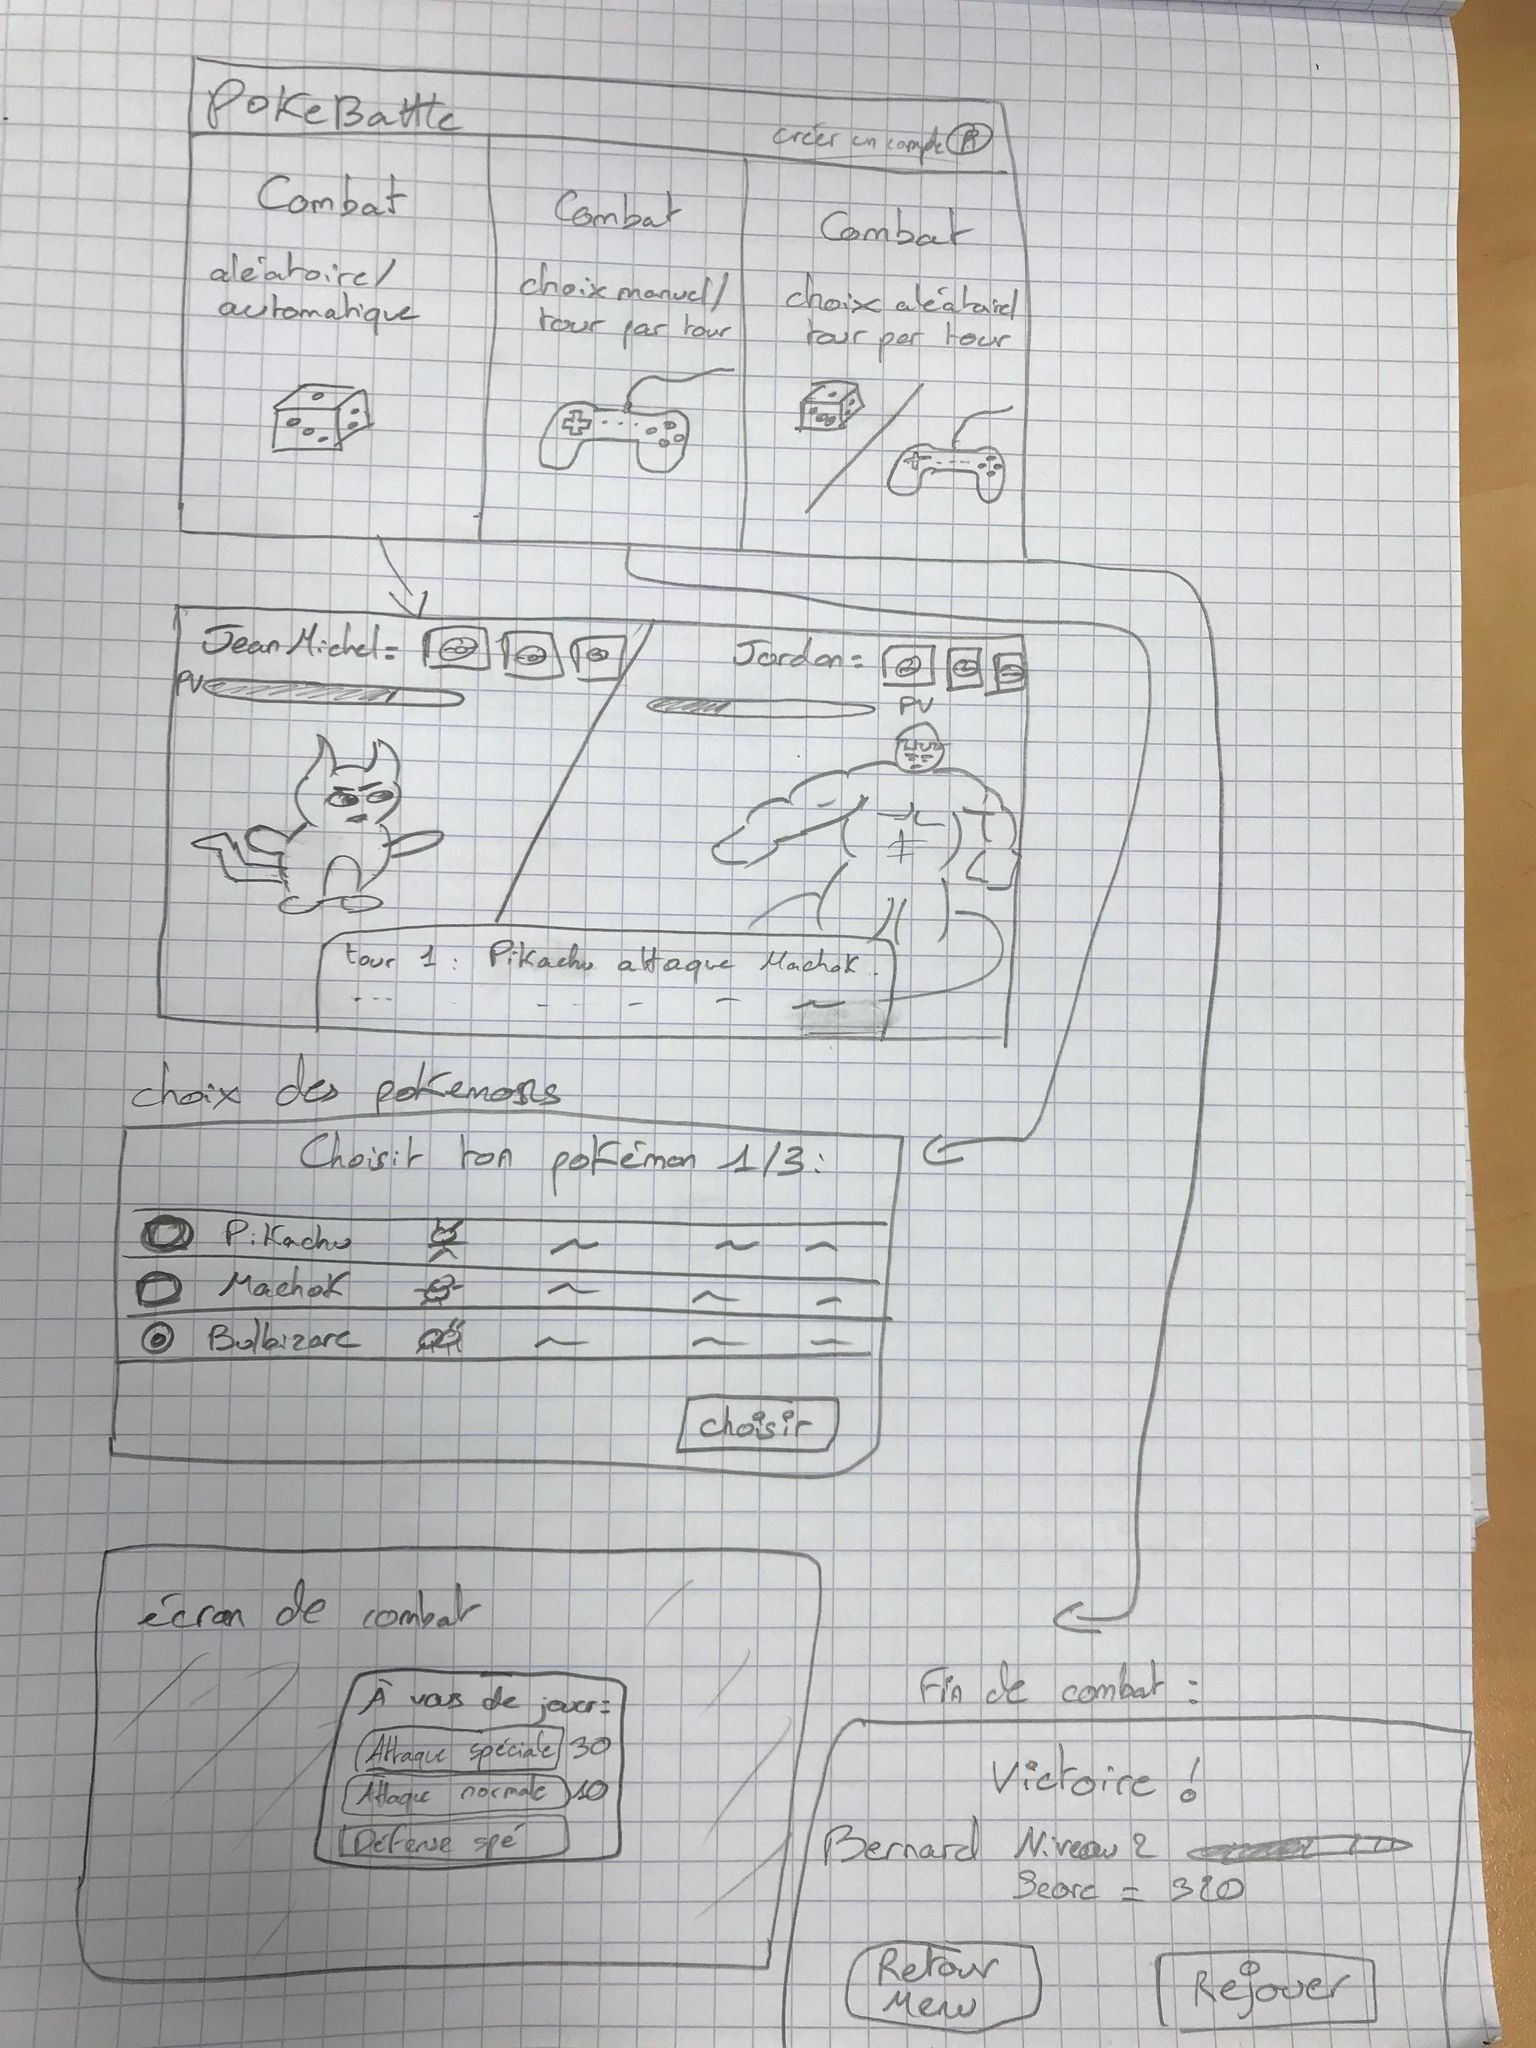 PokeBattle
créer un compte
Combat
aléatoire/
automatique
Combat
choix manuel/
tour par tour
Combat
choix aléatoire/
tour par tour
Jean Michel =
PV
Jordan =
PV
tour 1 : Pikachu attaque Machok.
choix des pokemons
Choisir ton pokémon 1/3 :
Pikachu
Machok
Bulbizare
choisir
écran de combat
À vous de jouer =
Attaque spéciale 30
Attaque normale 10
Défense spé
Fin de combat :
Victoire !
Bernard Niveau 2
Score = 320
Retour
Menu
Rejouer